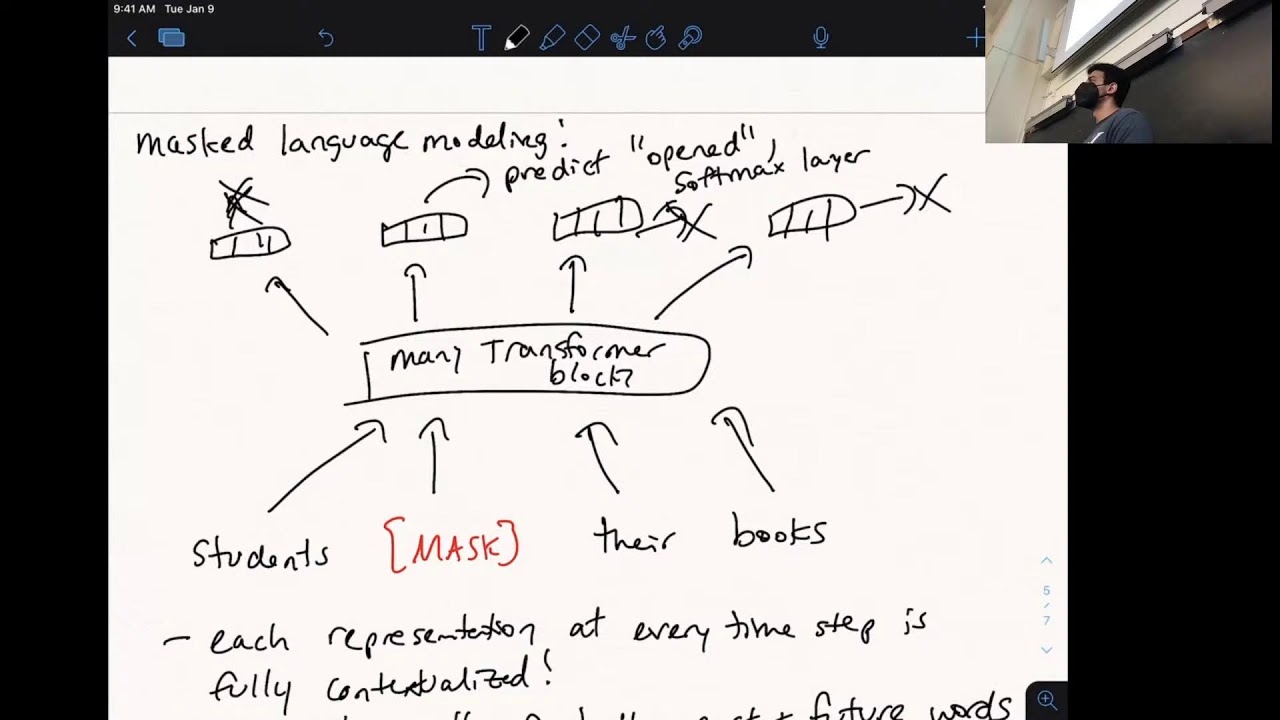 9:41 AM Tue Jan 9
masked language modeling:
predict "opened",
softmax layer
many Transformer
blocks
students [MASK] their books
5
7
- each representation at every time step is
fully contextualized!
past + future words